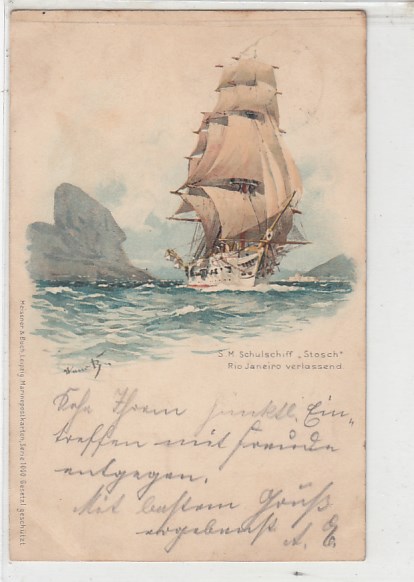 S. M. Schulschiff „Stosch"
Rio Janeiro verlassend.
Meissner & Buch, Leipzig, Marinepostkarten, Serie 1090 Gesetzl. geschützt
Sehe Ihrem pünktl. Ein-
treffen mit Freude
entgegen.
Mit bestem Gruß
ergebenst A. E.